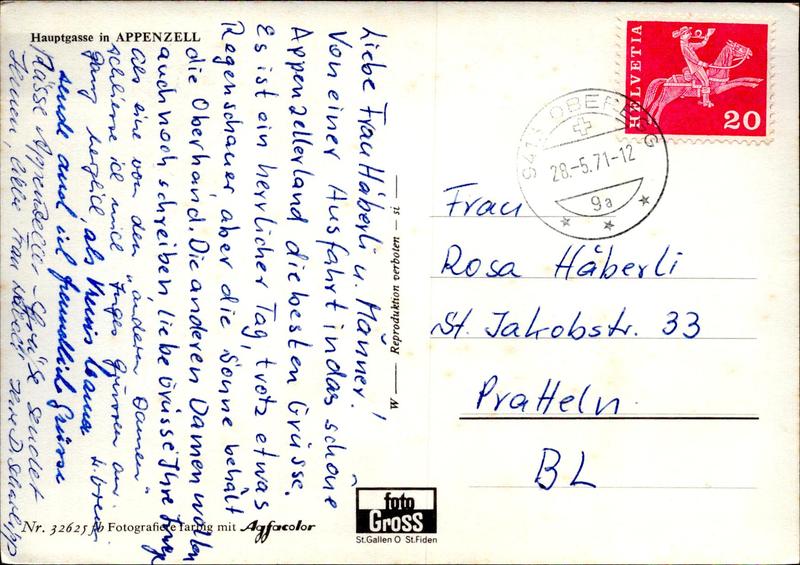 Hauptgasse in APPENZELL
Liebe Frau Häberli u. Männer!
Von einer Ausfahrt in das schöne
Appenzellerland die besten Grüsse.
Es ist ein herrlicher Tag, trotz etwas
Regenschauer aber die Sonne behält
die Oberhand. Die anderen Damen wollen
auch noch schreiben, liebe Grüsse Ihre
Als eine von den "anderen Damen"
schliesse ich mich
ganz herzlich als
sende auch ich freundliche Grüsse
Nässe Appenzeller - Grüsse sendet
Ihnen, liebe Frau Häberli Ihre D.
W — Reproduktion verboten — si
Nr. 32625 fb Fotografiere farbig mit Agfacolor
foto
Gross
St.Gallen O St.Fiden
HELVETIA
20
9413 OBEREGG
28.-5.71-12
9a
Frau
Rosa Häberli
St. Jakobstr. 33
Pratteln
BL